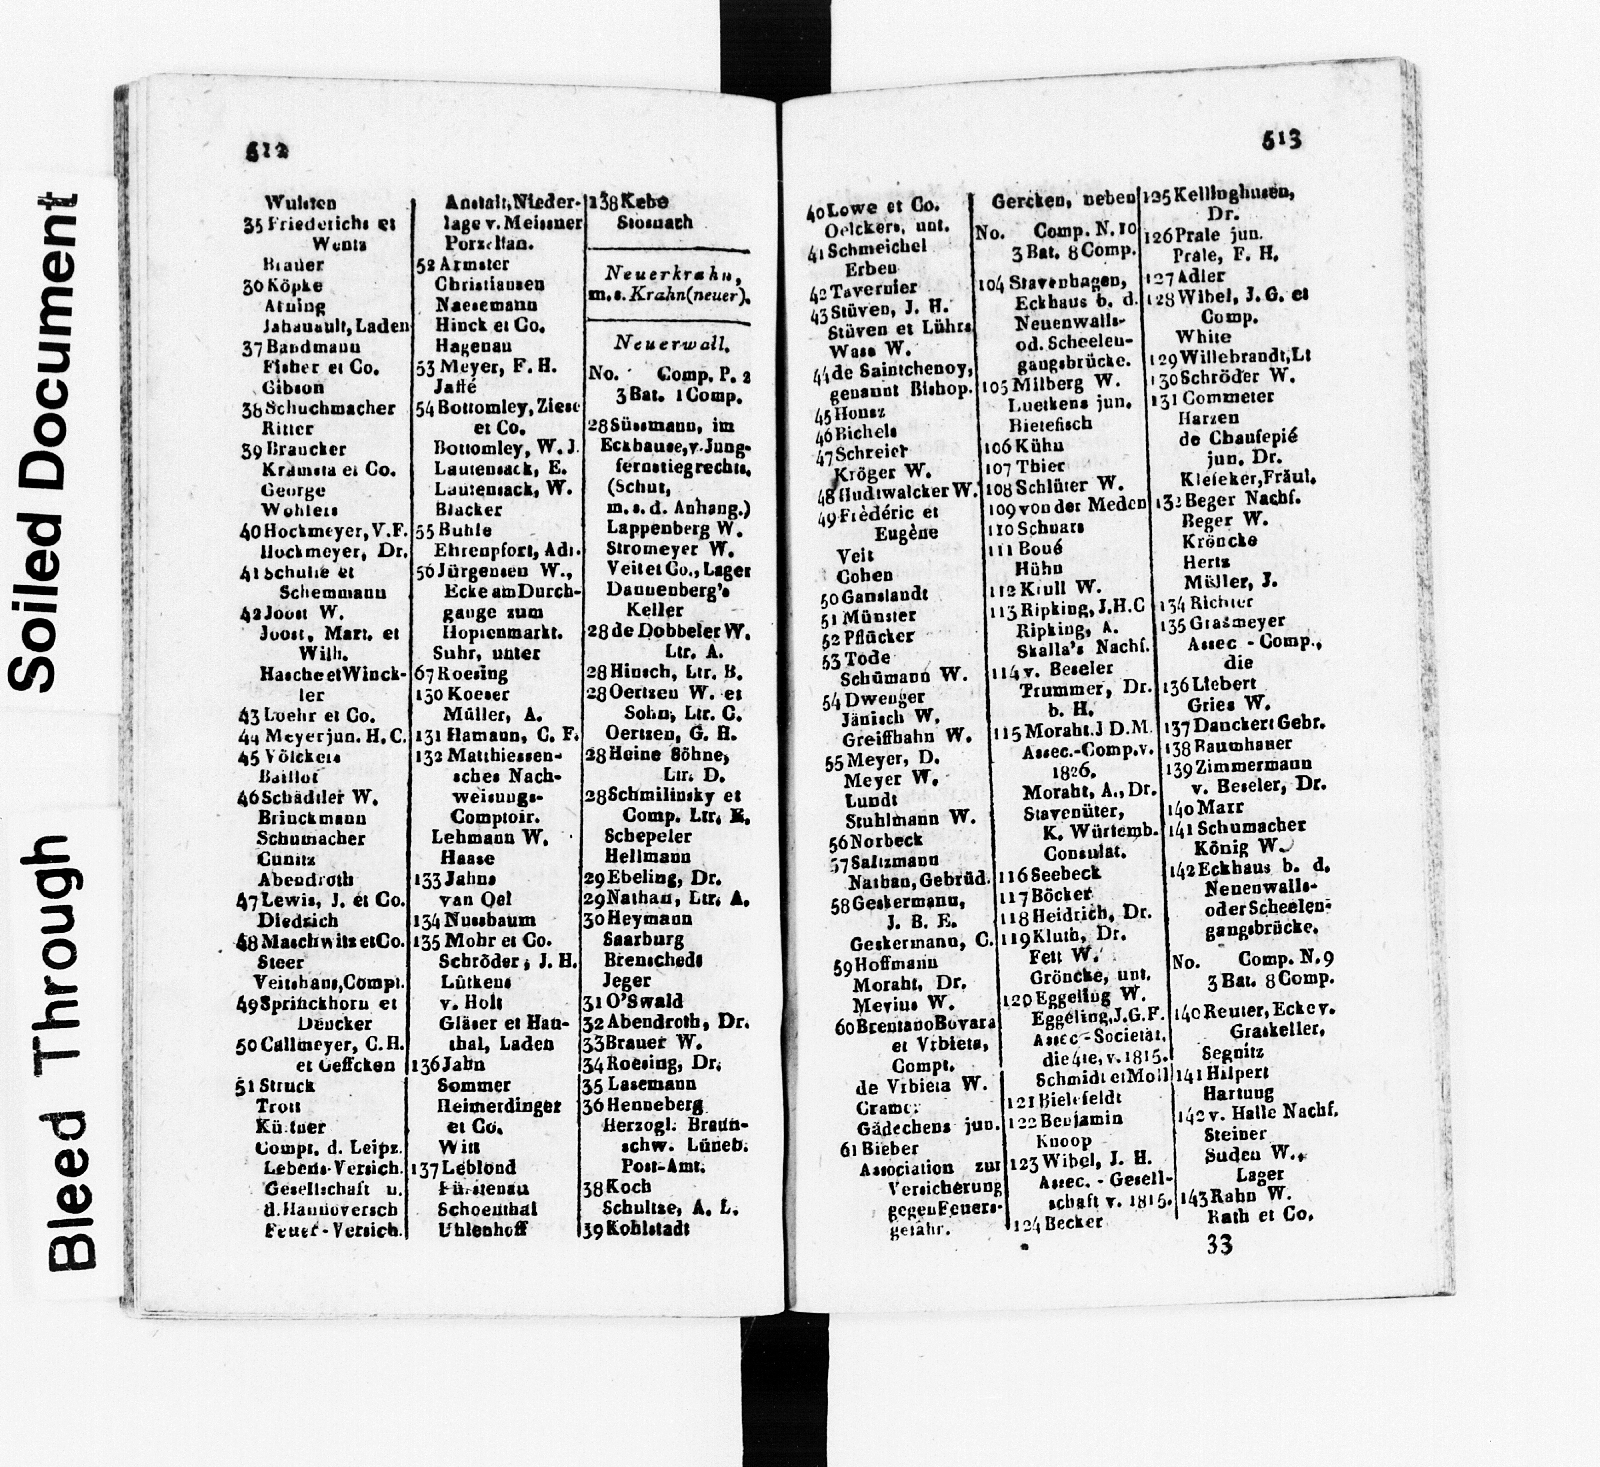 Soiled Document
Bleed Through
512
Wulsten
35 Friederichs et
Wentz
Brauer
36 Köpke
Atning
Jahanault, Laden
37 Bandmann
Fisher et Co.
Gibson
38 Schuchmacher
Ritter
39 Braucker
Kramsta et Co.
George
Wohlers
40 Hockmeyer, V. F.
Hockmeyer, Dr.
41 Schulte et
Schemmann
42 Joost W.
Joost, Mart. et
Wilh.
Hasche et Winck-
ler
43 Luehr et Co.
44 Meyer jun. H. C.
45 Völckers
Baillot
46 Schädtler W.
Brinckmann
Schumacher
Cunitz
Abendroth
47 Lewis, J. et Co.
Diedrich
48 Maschwitz et Co.
Steer
Veitshans, Compt.
49 Sprinckhorn et
Dencker
50 Callmeyer, C. H.
et Geffcken
51 Struck
Trott
Küstner
Compt. d. Leipz.
Lebens-Versich.
Gesellschaft u.
d. Hannoversch
Feuer-Versich.
Anstalt, Nieder-
lage v. Meissner
Porzellan.
52 Armster
Christiansen
Naesemann
Hinck et Co.
Hagenau
53 Meyer, F. H.
Jaffé
54 Bottomley, Ziese
et Co.
Bottomley, W. J.
Lautensack, E.
Lautensack, W.
Blacker
55 Buhle
Ehrenpfort, Adr.
56 Jürgensen W.,
Ecke am Durch-
gange zum
Hopfenmarkt.
Suhr, unter
67 Roesing
130 Koeser
Müller, A.
131 Hamann, C. F.
132 Matthiessen-
sches Nach-
weisungs-
Comptoir.
Lehmann W.
Haase
133 Jahns
van Oel
134 Nussbaum
135 Mohr et Co.
Schröder, J. H.
Lütkens
v. Holt
Gläser et Hau-
thal, Laden
136 Jahn
Sommer
Heimerdinger
et Co.
Witt
137 Leblond
Fürstenau
Schoenthal
Uhlenhoff
138 Kebe
Stosnach
Neuerkrahn,
m. s. Krahn (neuer).
Neuerwall.
No. Comp. P. 2
3 Bat. 1 Comp.
28 Süssmann, im
Eckhause, v. Jung-
fernstieg rechts,
(Schut,
m. s. d. Anhang.)
Lappenberg W.
Stromeyer W.
Veit et Co., Lager
Dannenberg's
Keller
28 de Dobbeler W.
Ltr. A.
28 Hinsch, Ltr. B.
28 Oertzen W. et
Sohn, Ltr. C.
Oertzen, G. H.
28 Heine Söhne,
Ltr. D.
28 Schmilinsky et
Comp. Ltr. E.
Schepeler
Hellmann
29 Ebeling, Dr.
29 Nathan, Ltr. A.
30 Heymann
Saarburg
Brenscheds
Jeger
31 O'Swald
32 Abendroth, Dr.
33 Brauer W.
34 Roesing, Dr.
35 Lasemann
36 Henneberg
Herzogl. Braun-
schw. Lüneb.
Post-Amt.
38 Koch
Schultze, A. L.
39 Kohlstadt
513
40 Lowe et Co.
Oelckers, unt.
41 Schmeichel
Erben
42 Tavernier
43 Stüven, J. H.
Stüven et Lührs
Wass W.
44 de Saintchenoy,
genannt Bishop.
45 Honsz
46 Bichels
47 Schreier
Kröger W.
48 Hudtwalcker W.
49 Frédéric et
Eugène
Veit
Cohen
50 Ganslandt
51 Münster
52 Pflücker
53 Tode
Schümann W.
54 Dwenger
Jänisch W.
Greiffhahn W.
55 Meyer, D.
Meyer W.
Lundt
Stuhlmann W.
56 Norbeck
57 Saltzmann
Nathan, Gebrüd.
58 Geskermann,
J. B. E.
Geskermann, C.
59 Hoffmann
Moraht, Dr.
Mevius W.
60 Brentano Bovara
et Vrbieta,
Compt.
de Vrbieta W.
Cramer
Gädechens jun.
61 Bieber
Association zur
Versicherung
gegen Feuers-
gefahr.
Gercken, neben
No. Comp. N. 10
3 Bat. 8 Comp.
104 Stavenhagen,
Eckhaus b. d.
Neuenwalls-
od. Scheelen-
gangsbrücke.
105 Milberg W.
Luetkens jun.
Bietefisch
106 Kühn
107 Thier
108 Schlüter W.
109 von der Meden
110 Schuars
111 Boué
Hühn
112 Krull W.
113 Ripking, J. H. C
Ripking, A.
Skalla's Nachf.
114 v. Beseler
Trummer, Dr.
b. H.
115 Moraht. J D. M.
Assec.-Comp. v.
1826.
Moraht, A., Dr.
Stavenüter,
K. Würtemb.
Consulat.
116 Seebeck
117 Böcker
118 Heidrich, Dr.
119 Kluth, Dr.
Fett W.
Gröncke, unt.
120 Eggeling W.
Eggeling, J. G. F.
Assec-Societät,
die 4te, v. 1815.
Schmidt et Moll
121 Bielefeldt
122 Benjamin
Knoop
123 Wibel, J. H.
Assec.-Gesell-
schaft v. 1815.
124 Becker
125 Kellinghusen,
Dr.
126 Prale jun.
Prale, F. H.
127 Adler
128 Wibel, J. G. et
Comp.
White
129 Willebrandt, Lt
130 Schröder W.
131 Commeter
Harzen
de Chaufepié
jun. Dr.
Klefeker, Fräul.
132 Beger Nachf.
Beger W.
Kröncke
Hertz
Müller, J.
134 Richter
135 Grasmeyer
Assec-Comp.,
die
136 Liebert
Gries W.
137 Danckert Gebr.
138 Raumhauer
139 Zimmermann
v. Beseler, Dr.
140 Marr
141 Schumacher
König W.
142 Eckhaus b. d.
Neuenwalls-
oder Scheelen-
gangsbrücke.
No. Comp. N. 9
3 Bat. 8 Comp.
140 Reuter, Ecke v.
Graskeller,
Segnitz
141 Hilpert
Hartung
142 v. Halle Nachf.
Steiner
Suden W.,
Lager
143 Rahn W.
Rath et Co.
33